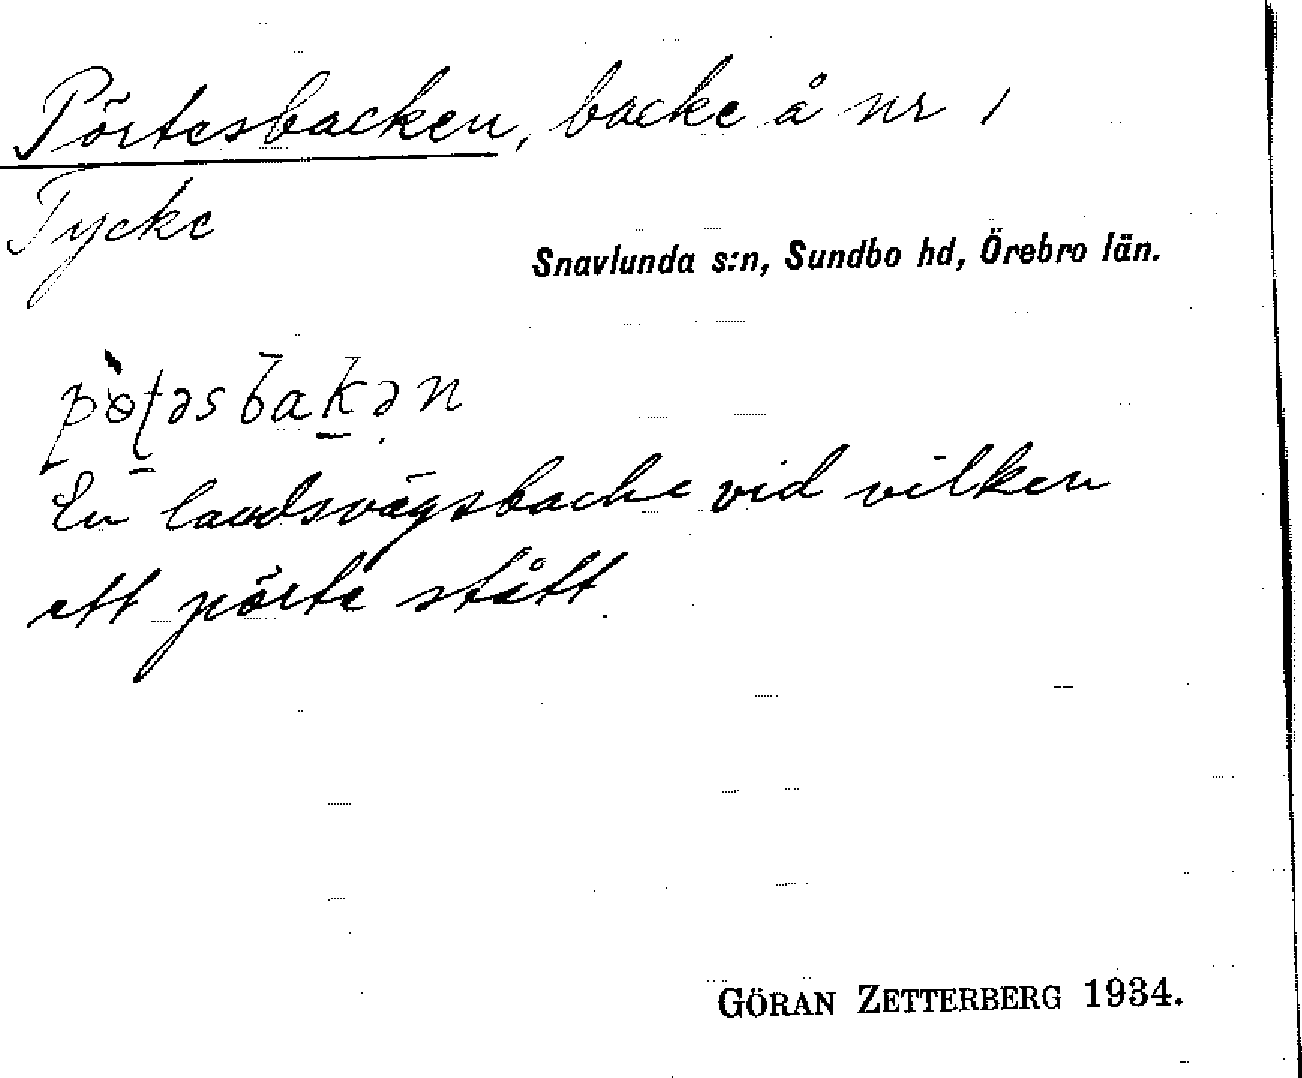 Pörtesbacken, backe å nr 1
Tycke
Snavlunda s:n, Sundbo hd, Örebro län.
pø̀ʈəsbakən
En landsvägsbacke vid vilken
ett pörte stått.
GÖRAN ZETTERBERG 1934.